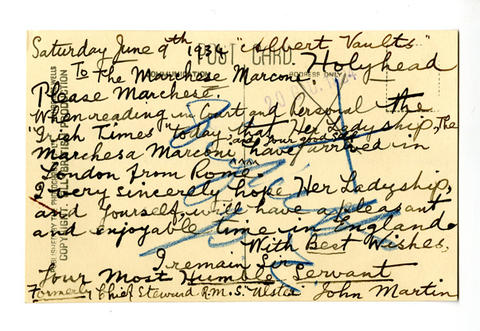 Saturday June 9th 1934 "Albert Vaults"
POST CARD.
To The Marchese Marconi. Holyhead
ADDRESS ONLY
Please Marchese
When reading in Court and Personal the
"Irish Times" today that Her Ladyship, The
and your good self
Marchesa Marconi have arrived in
London from Rome.
I very sincerely hope Her Ladyship,
and Yourself will have a pleasant
and enjoyable time in England
With Best Wishes,
I remain Sir
Your Most Humble Servant
Formerly Chief Steward R.M.S. "Ulster" John Martin